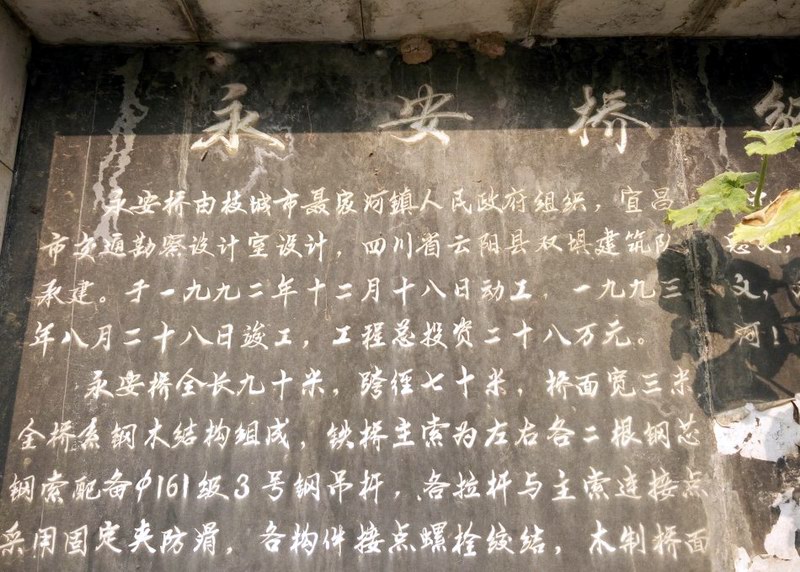 永安桥
永安桥由枝城市聂家河镇人民政府组织，宜昌
市交通勘察设计室设计，四川省云阳县双堰建筑队
承建。于一九九二年十二月十八日动工，一九九三
年八月二十八日竣工，工程总投资二十八万元。
永安桥全长九十米，跨径七十米，桥面宽三米
全桥系钢木结构组成，铁桥主索为左右各二根钢芯
钢索配备φ161级3号钢吊杆，各拉杆与主索连接点
采用固定夹防滑，各构件接点螺栓绞结，木制桥面
文，
河！